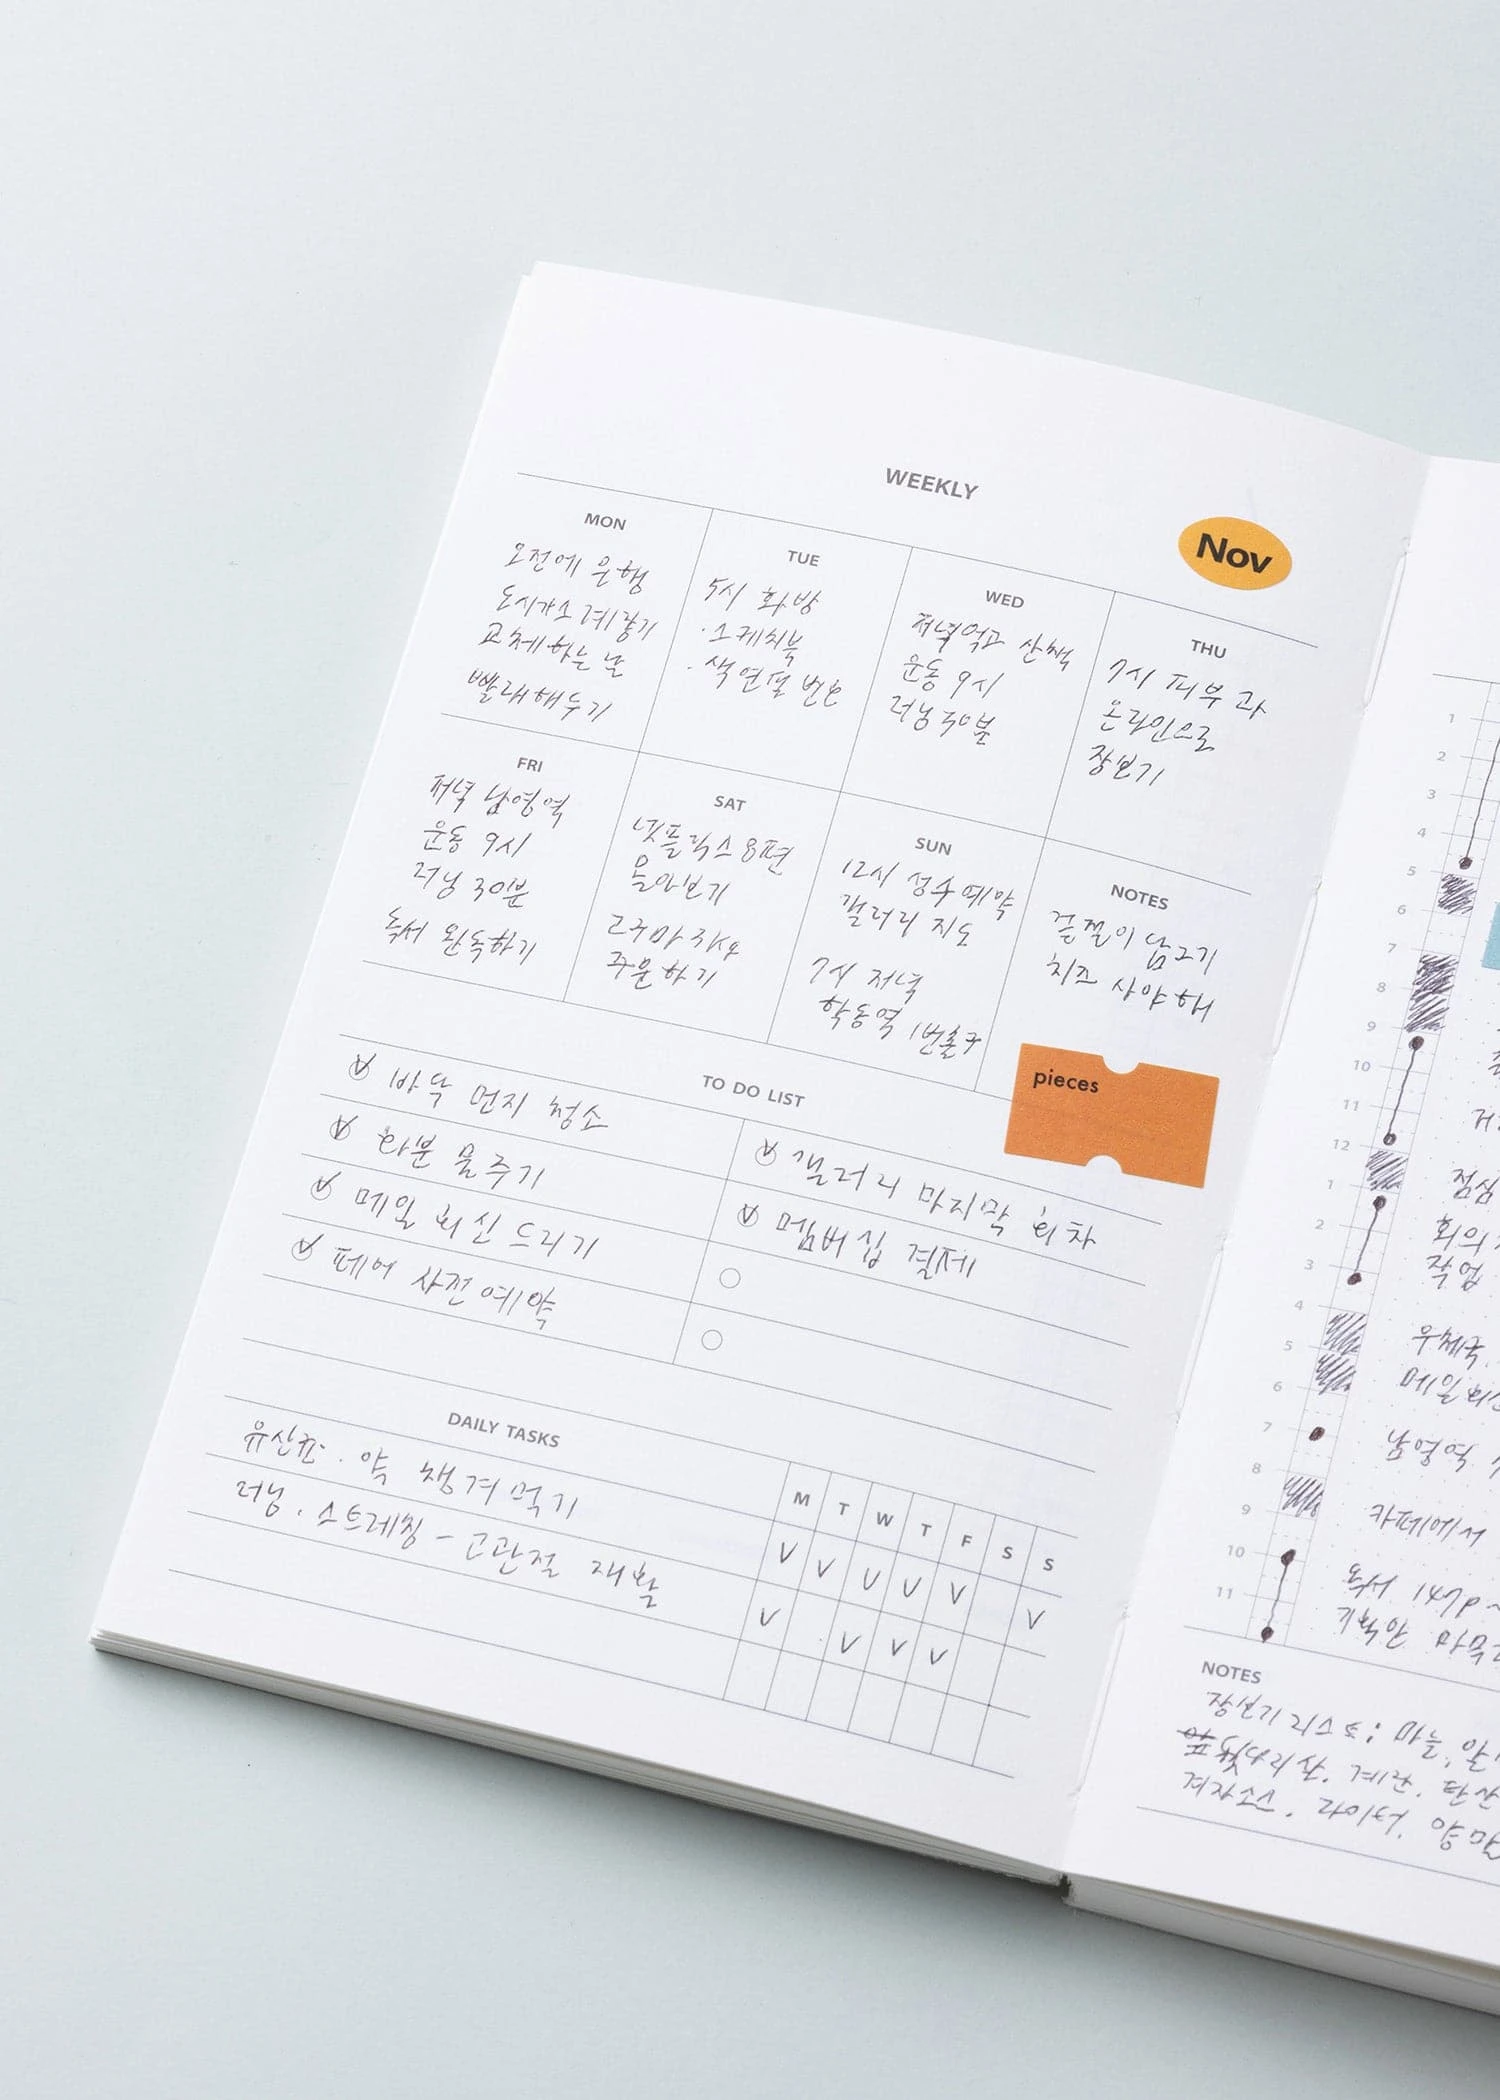 WEEKLY
Nov
MON
오전에 은행
도시가스 계량기
교체하는 날
빨래해두기
TUE
5시 화방
· 스케치북
· 색연필 번호
WED
저녁먹고 산책
운동 9시
러닝 30분
THU
7시 피부과
온라인으로
장보기
FRI
저녁 남영역
운동 9시
러닝 30분
독서 완독하기
SAT
넷플릭스 8편
몰아보기
고구마
주문하기
SUN
12시 성수 예약
갤러리 지도
7시 저녁
학동역 1번출구
NOTES
겉절이 담그기
치즈 사야해
pieces
TO DO LIST
바닥 먼지 청소
화분 물주기
메일 회신 드리기
페어 사전예약
갤러리 마지막 회차
멤버십 결제
DAILY TASKS
유산균 · 약 챙겨먹기
러닝 · 스트레칭 - 고관절 재활
M T W T F S S
V V V V V V
V V V V
1
2
3
4
5
6
7
8
9
10
11
12
1
2
3
4
5
6
7
8
9
10
11
점심
회의
작업
우체국
메일
남영역
카페에서
NOTES
장보기리스트: 마늘
계란. 탄산
겨자소스.